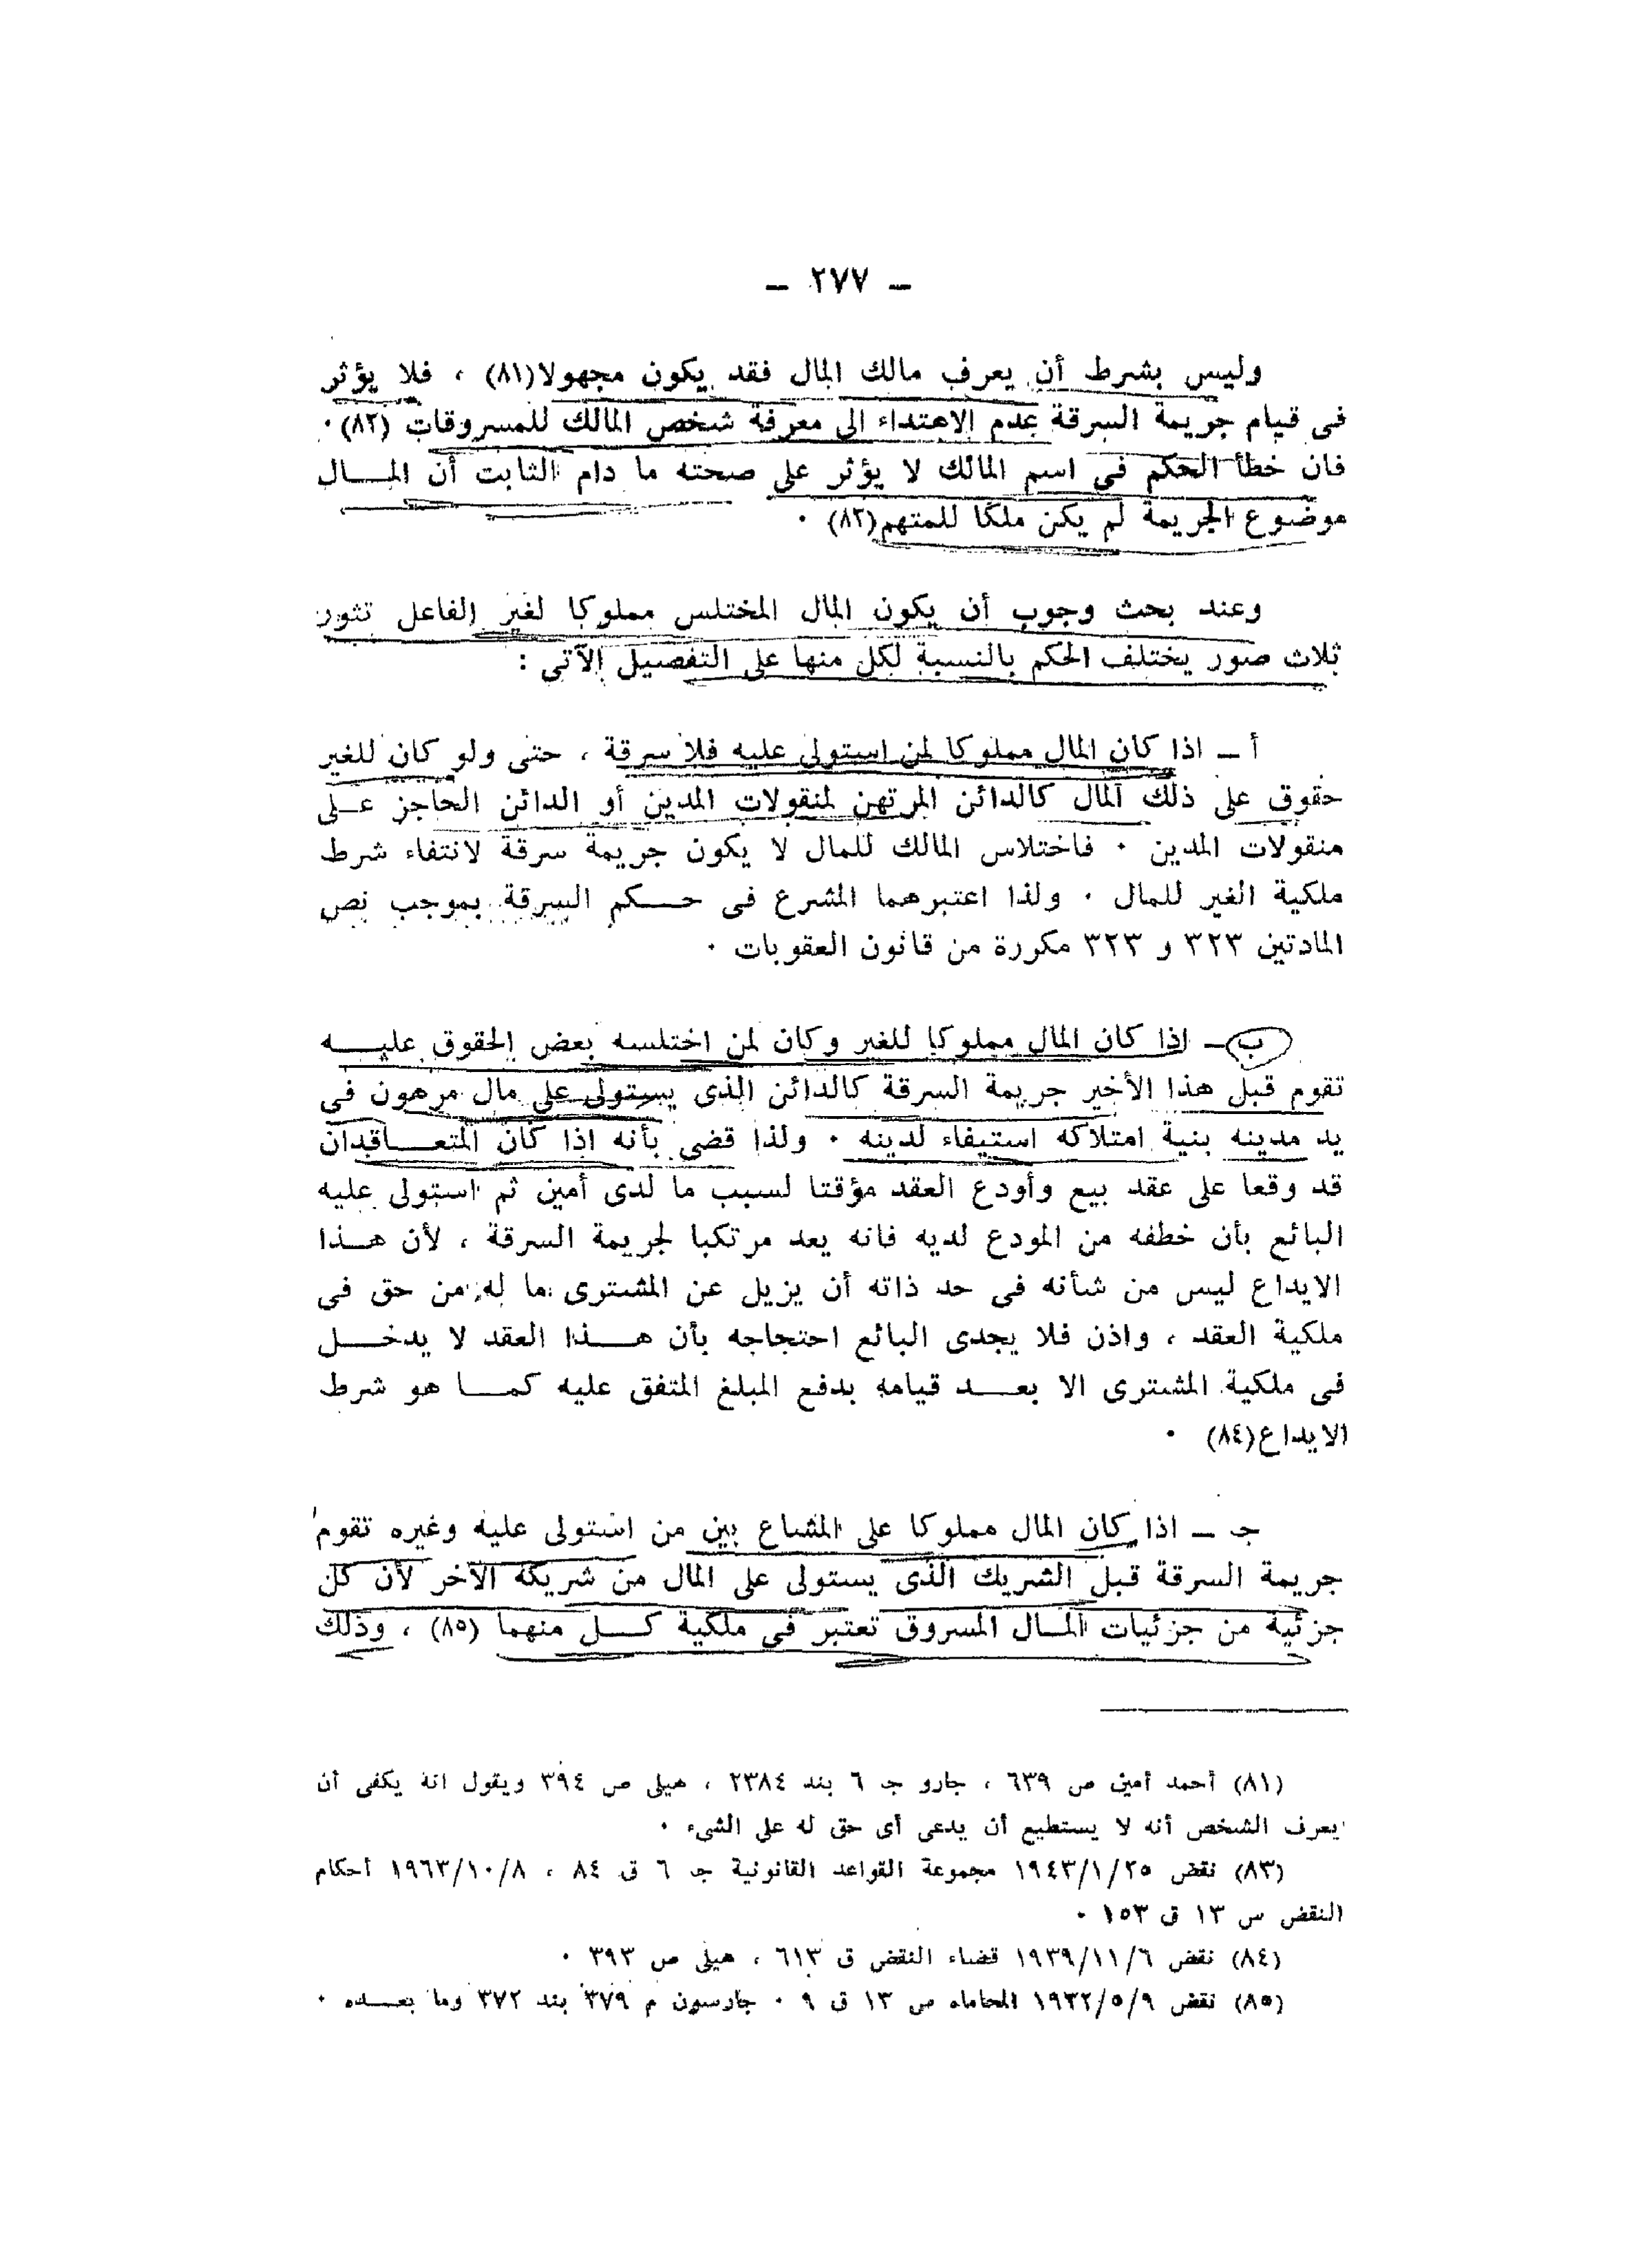 ــ ٢٧٧ ــ
وليس بشرط أن يعرف مالك المال فقد يكون مجهولا(٨١) ، فلا يؤثر
فى قيام جريمة السرقة عدم الاهتداء الى معرفة شخص المالك للمسروقات (٨٢)٠
فان خطأ الحكم فى اسم المالك لا يؤثر على صحته ما دام الثابت أن المـــال
موضوع الجريمة لم يكن ملكا للمتهم(٨٣) ٠
وعند بحث وجوب أن يكون المال المختلس مملوكا لغير الفاعل تثور
ثلاث صور يختلف الحكم بالنسبة لكل منها على التفصيل الآتى :
أ ــ اذا كان المال مملوكا لمن استولى عليه فلا سرقة ، حتى ولو كان للغير
حقوق على ذلك المال كالدائن المرتهن لمنقولات المدين أو الدائن الحاجز عــلى
منقولات المدين ٠ فاختلاس المالك للمال لا يكون جريمة سرقة لانتفاء شرط
ملكية الغير للمال ٠ ولذا اعتبرهما المشرع فى حـــكم السرقة بموجب نص
المادتين ٣٢٣ و ٣٢٣ مكررة من قانون العقوبات ٠
ب ــ اذا كان المال مملوكا للغير وكان لمن اختلسه بعض الحقوق عليـــه
تقوم قبل هذا الأخير جريمة السرقة كالدائن الذى يستولى على مال مرهون فى
يد مدينه بنية امتلاكه استيفاء لدينه ٠ ولذا قضى بأنه اذا كان المتعـــاقدان
قد وقعا على عقد بيع وأودع العقد مؤقتا لسبب ما لدى أمين ثم استولى عليه
البائع بأن خطفه من المودع لديه فانه يعد مرتكبا لجريمة السرقة ، لأن هـــذا
الايداع ليس من شأنه فى حد ذاته أن يزيل عن المشترى ما له من حق فى
ملكية العقد ، واذن فلا يجدى البائع احتجاجه بأن هـــذا العقد لا يدخـــل
فى ملكية المشترى الا بعـــد قيامه بدفع المبلغ المتفق عليه كمـــا هو شرط
الايداع(٨٤) ٠
جـ ــ اذا كان المال مملوكا على المشاع بين من استولى عليه وغيره تقوم
جريمة السرقة قبل الشريك الذى يستولى على المال من شريكه الآخر لأن كل
جزئية من جزئيات المـــال المسروق تعتبر فى ملكية كـــل منهما (٨٥) ، وذلك
(٨١) أحمد أمين ص ٦٣٩ ، جارو جـ ٦ بند ٢٣٨٤ ، هيلى ص ٣٩٤ ويقول انه يكفى أن
يعرف الشخص أنه لا يستطيع أن يدعى أى حق له على الشىء ٠
(٨٣) نقض ١٩٤٣/١/٢٥ مجموعة القواعد القانونية جـ ٦ ق ٨٤ ، ١٩٦٣/١٠/٨ أحكام
النقض س ١٣ ق ١٥٣ ٠
(٨٤) نقض ١٩٣٩/١١/٦ قضاء النقض ق ٦١٣ ، هيلى ص ٣٩٣ ٠
(٨٥) نقض ١٩٣٢/٥/٩ المحاماه س ١٣ ق ٩ ٠ جارسون م ٣٧٩ بند ٣٧٢ وما بعـــده ٠